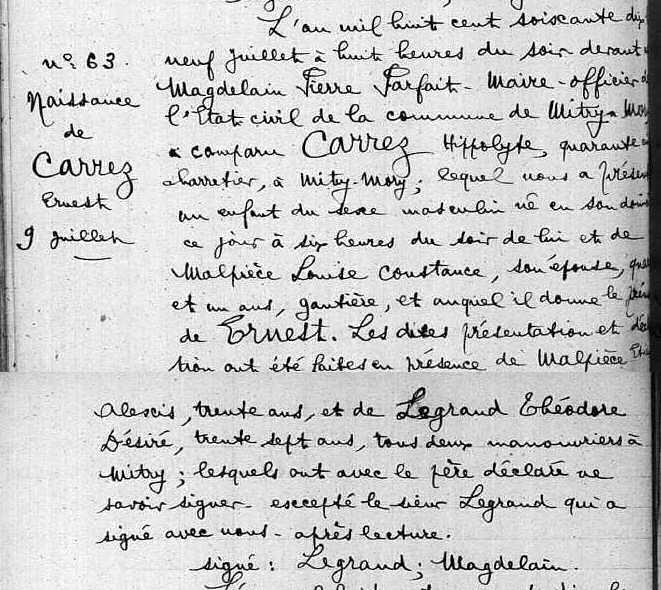 L'an mil huit cent soixante dix
n° 63.
Naissance
de
Carrez
Ernest
9 juillet
neuf juillet à huit heures du soir devant
Magdelain Pierre Parfait - Maire - officier de
l'Etat civil de la commune de Mitry-Mory
a comparu Carrez Hippolyte, quarante
charretier, à Mitry-Mory; lequel nous a présen
un enfant du sexe masculin né en son domi
ce jour à six heures du soir de lui et de
Malpièce Louise Constance, son épouse, qua
et un ans, gantière, et auquel il donne le prén
de Ernest. Les dites présentation et décl
tion ont été faites en présence de Malpièce
Alexis, trente ans, et de Legrand Théodore
Désiré, trente sept ans, tous deux manouvriers à
Mitry; lesquels ont avec le père déclaré ne
savoir signer - excepté le sieur Legrand qui a
signé avec nous - après lecture.
signé : Legrand; Magdelain.